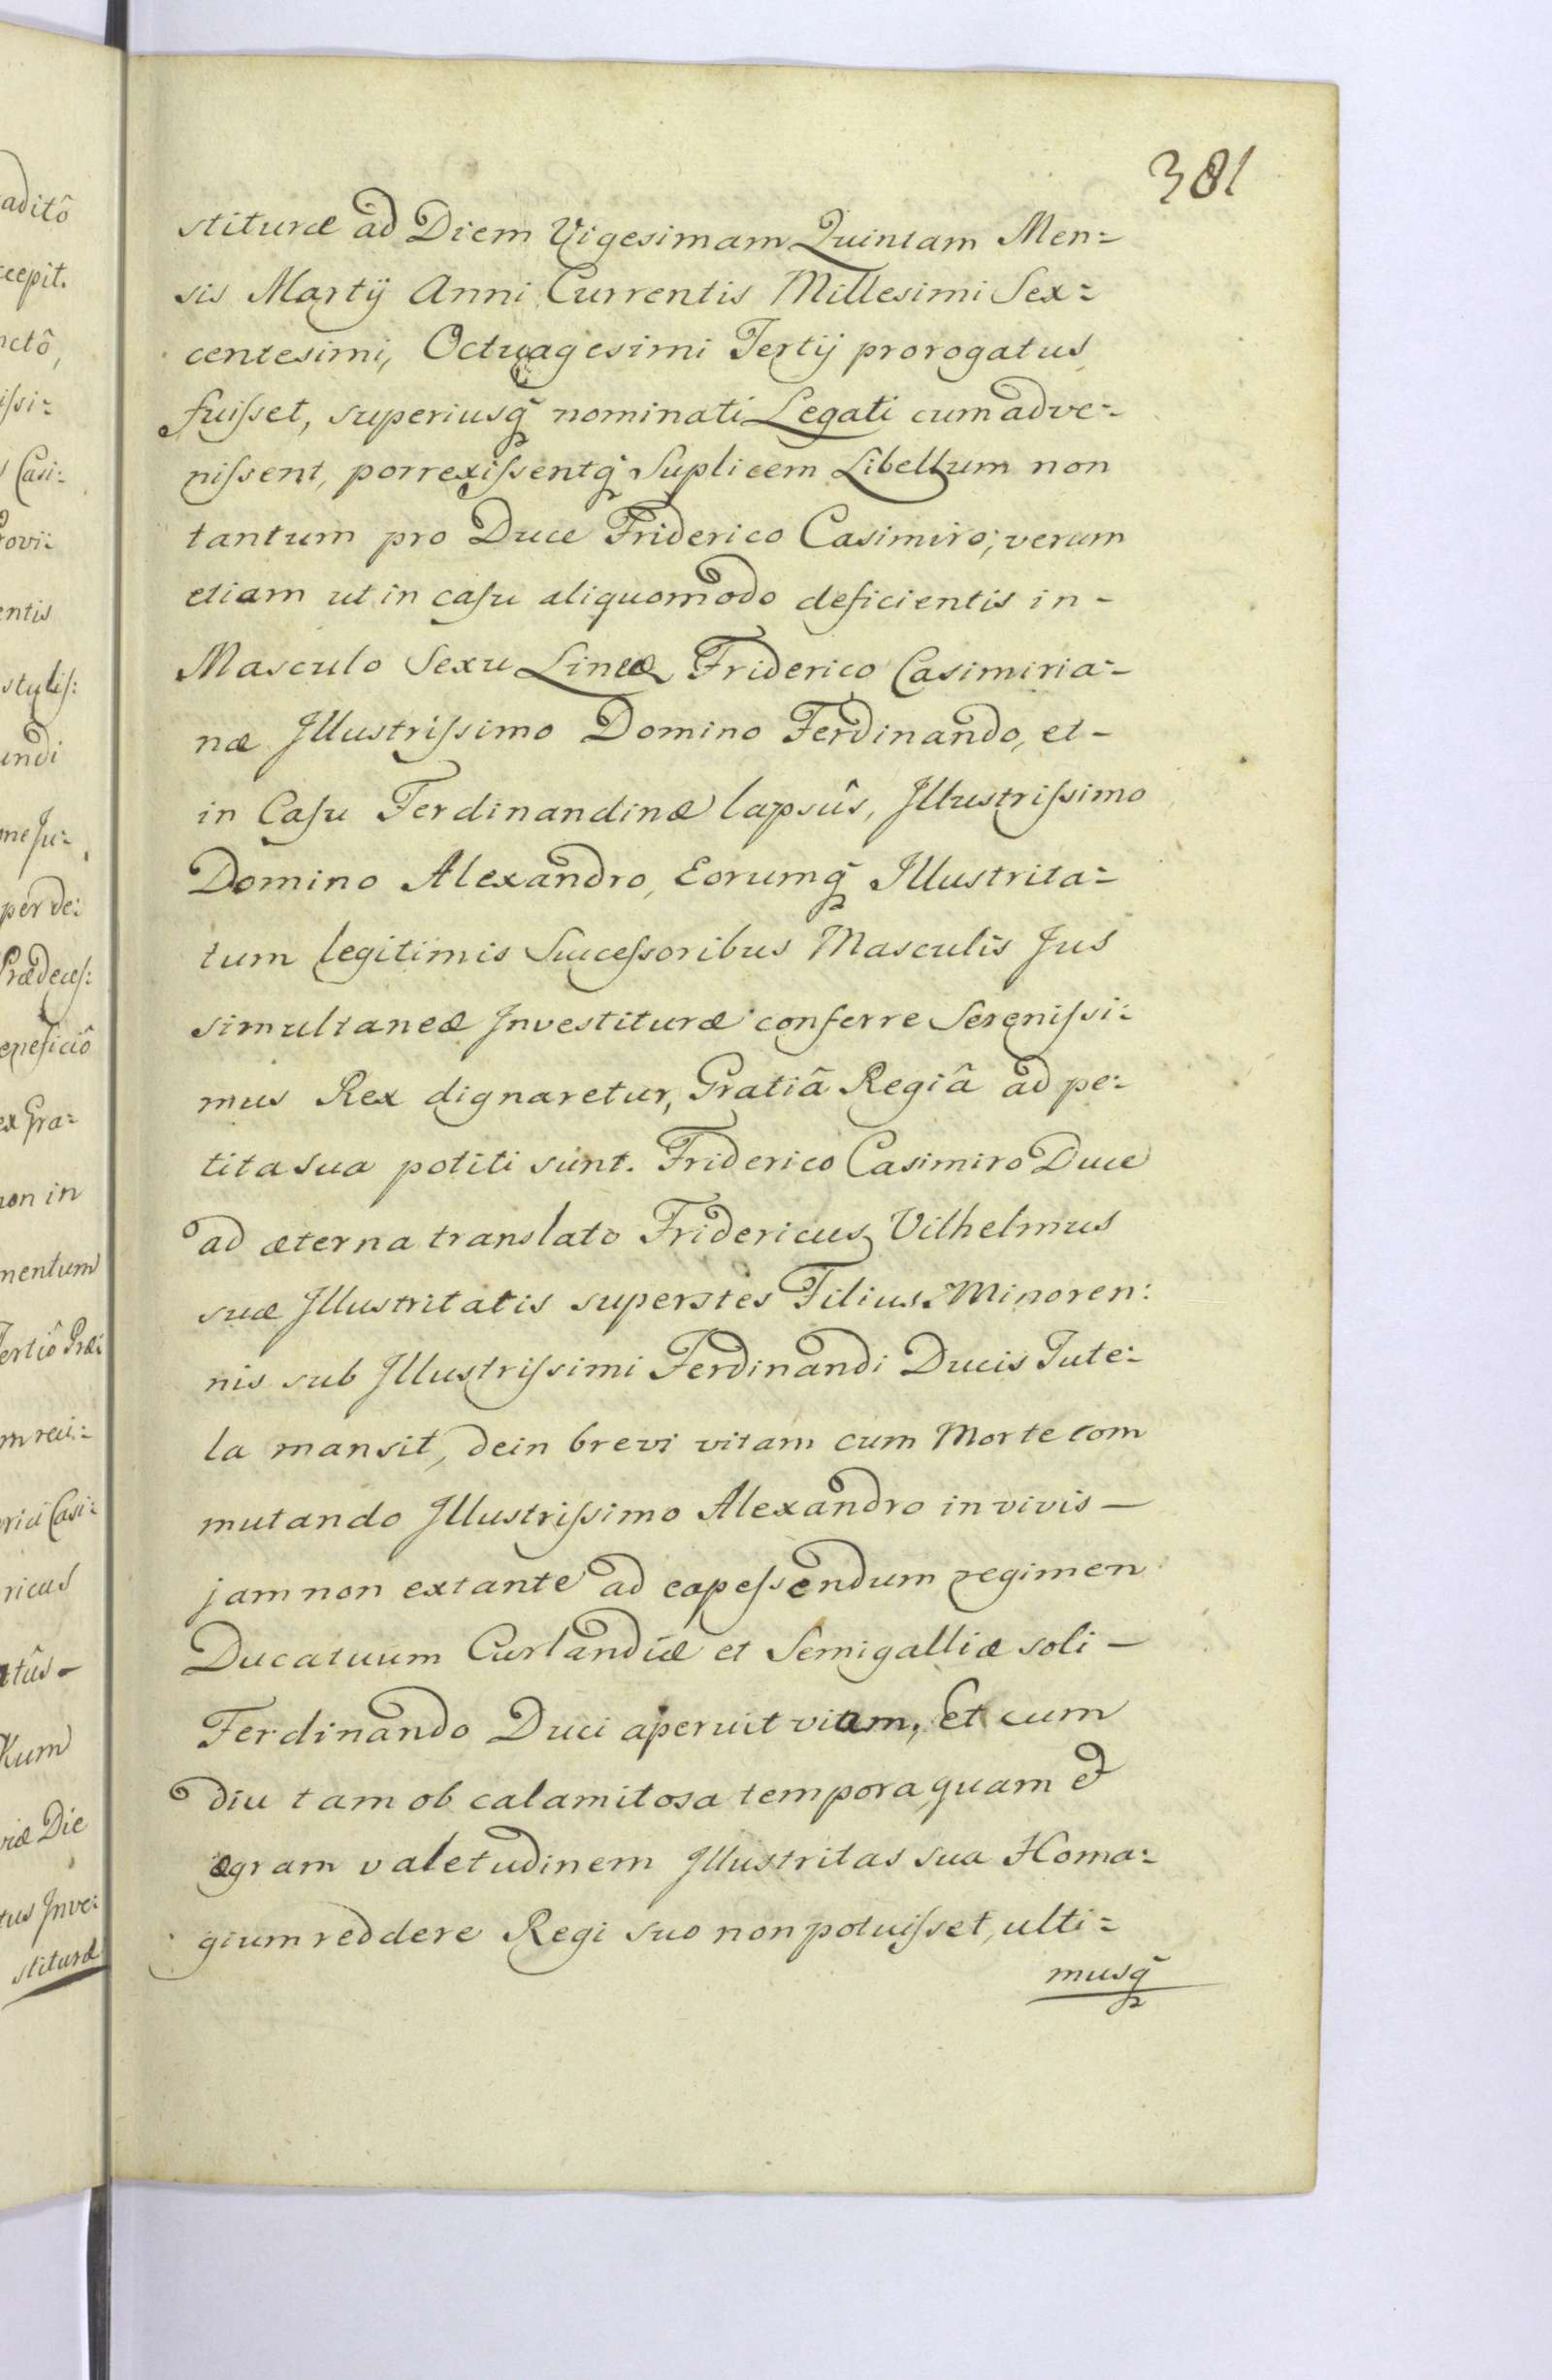 381
stituræ ad Diem Vigesimam Quintam Men=
sis Martÿ Anni Currentis Millesimi Sex=
centesimi, Octuagesimi Tertÿ prorogatus
fuiſset, superiusq̃ nominati Legati cum adve=
niſsent, porrexiſsentq̃ Suplicem Libellum non
tantum pro Duce Friderico Casimiro; verum
etiam ut in caſu aliquomodo deficientis in-
Masculo Sexu Lineæ Friderico Casimiria=
næ Illustriſsimo Domino Ferdinando, et-
in Caſu Ferdinandinæ lapsûs, Illustriſsimo
Domino Alexandro, Eorumq̃ Illustrita=
tum legitimis Succeſsoribus Masculis Jus
simultaneæ Investituræ conferre Sereniſsi=
mus Rex dignaretur, Gratiâ Regiâ ad pe=
tita sua potiti sunt. Friderico Casimiro Duce
ad æterna translato Fridericus Vilhelmus
suæ Illustritatis superstes Filius Minoren:
nis sub Illustriſsimi Ferdinandi Ducis Tute=
la mansit, dein brevi vitam cum Morte com
mutando Illustriſsimo Alexandro in vivis —
jam non extante ad capeſsendum regimen
Ducatuum Curlandiæ et Semigalliæ soli —
Ferdinando Duci aperuit viam, Et cum
diu tam ob calamitosa tempora, quam &
ægram valetudinem Illustritas sua Homa=
gium reddere Regi suo non potuiſset, ulti=
musq̃
aditô
cepit.
nctô,
iſsi=
Casi=
ovi=
entis
styliſ:
undi
per de:
Prædeceſ:
eneficiô
ex Gra=
non in
mentum
ertiô Præ:
rici Casi=
ricus
tûs-
Kum
riæ Die
tus Inve:
stituræ